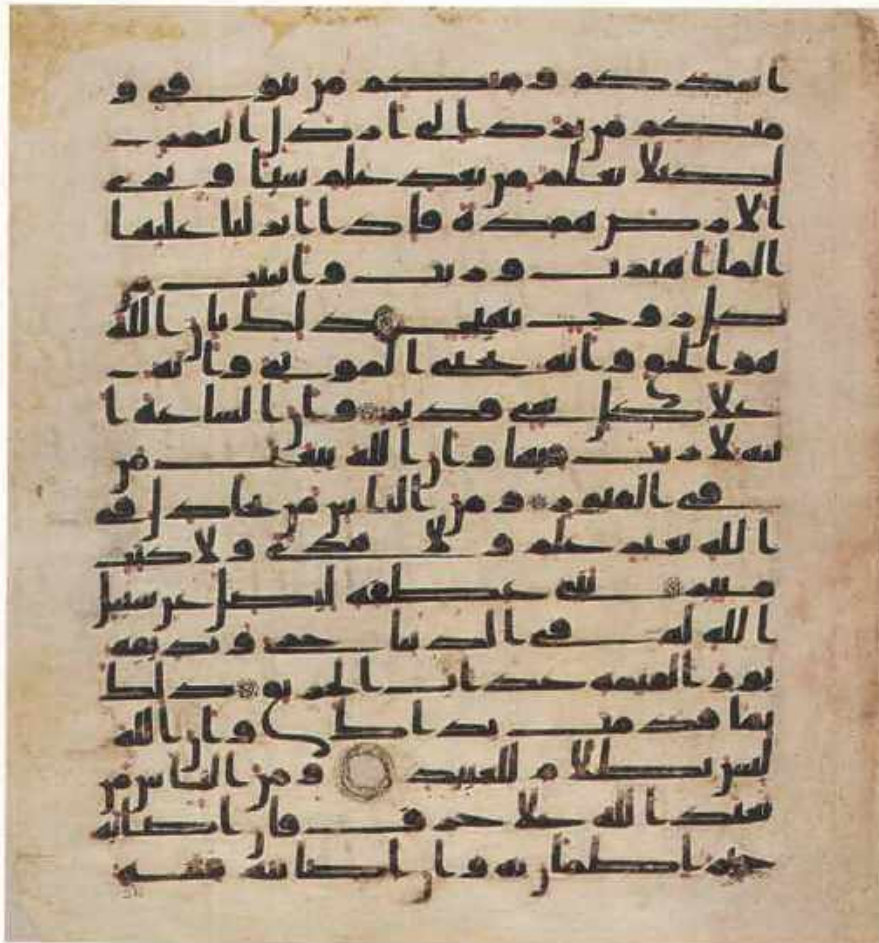 اشدكم ومنكم من يتوفى و
منكم من يرد الى ارذل العمر
لكيلا يعلم من بعد علم شيا وترى
الارض همدة فاذا انزلنا عليها
الما اهتزت وربت وانبتت من
كل زوج بهيج ذلك بان الله
هو الحق وانه يحي الموتى وانه
على كل شى قدير وان الساعة ا
تيه لا ريب فيها وان الله يبعث من
فى القبور ومن الناس من يجادل فى
الله بغير علم ولا هدى ولا كتب
منير ثنى عطفه ليضل عن سبيل
الله له فى الدنيا خزى ونذيقه
يوم القيمه عذاب الحريق ذلك
بما قدمت يداك وان الله
ليس بظلام للعبيد ومن الناس من
يعبد الله على حرف فان اصابه
خير اطمان به وان اصابته فتنه